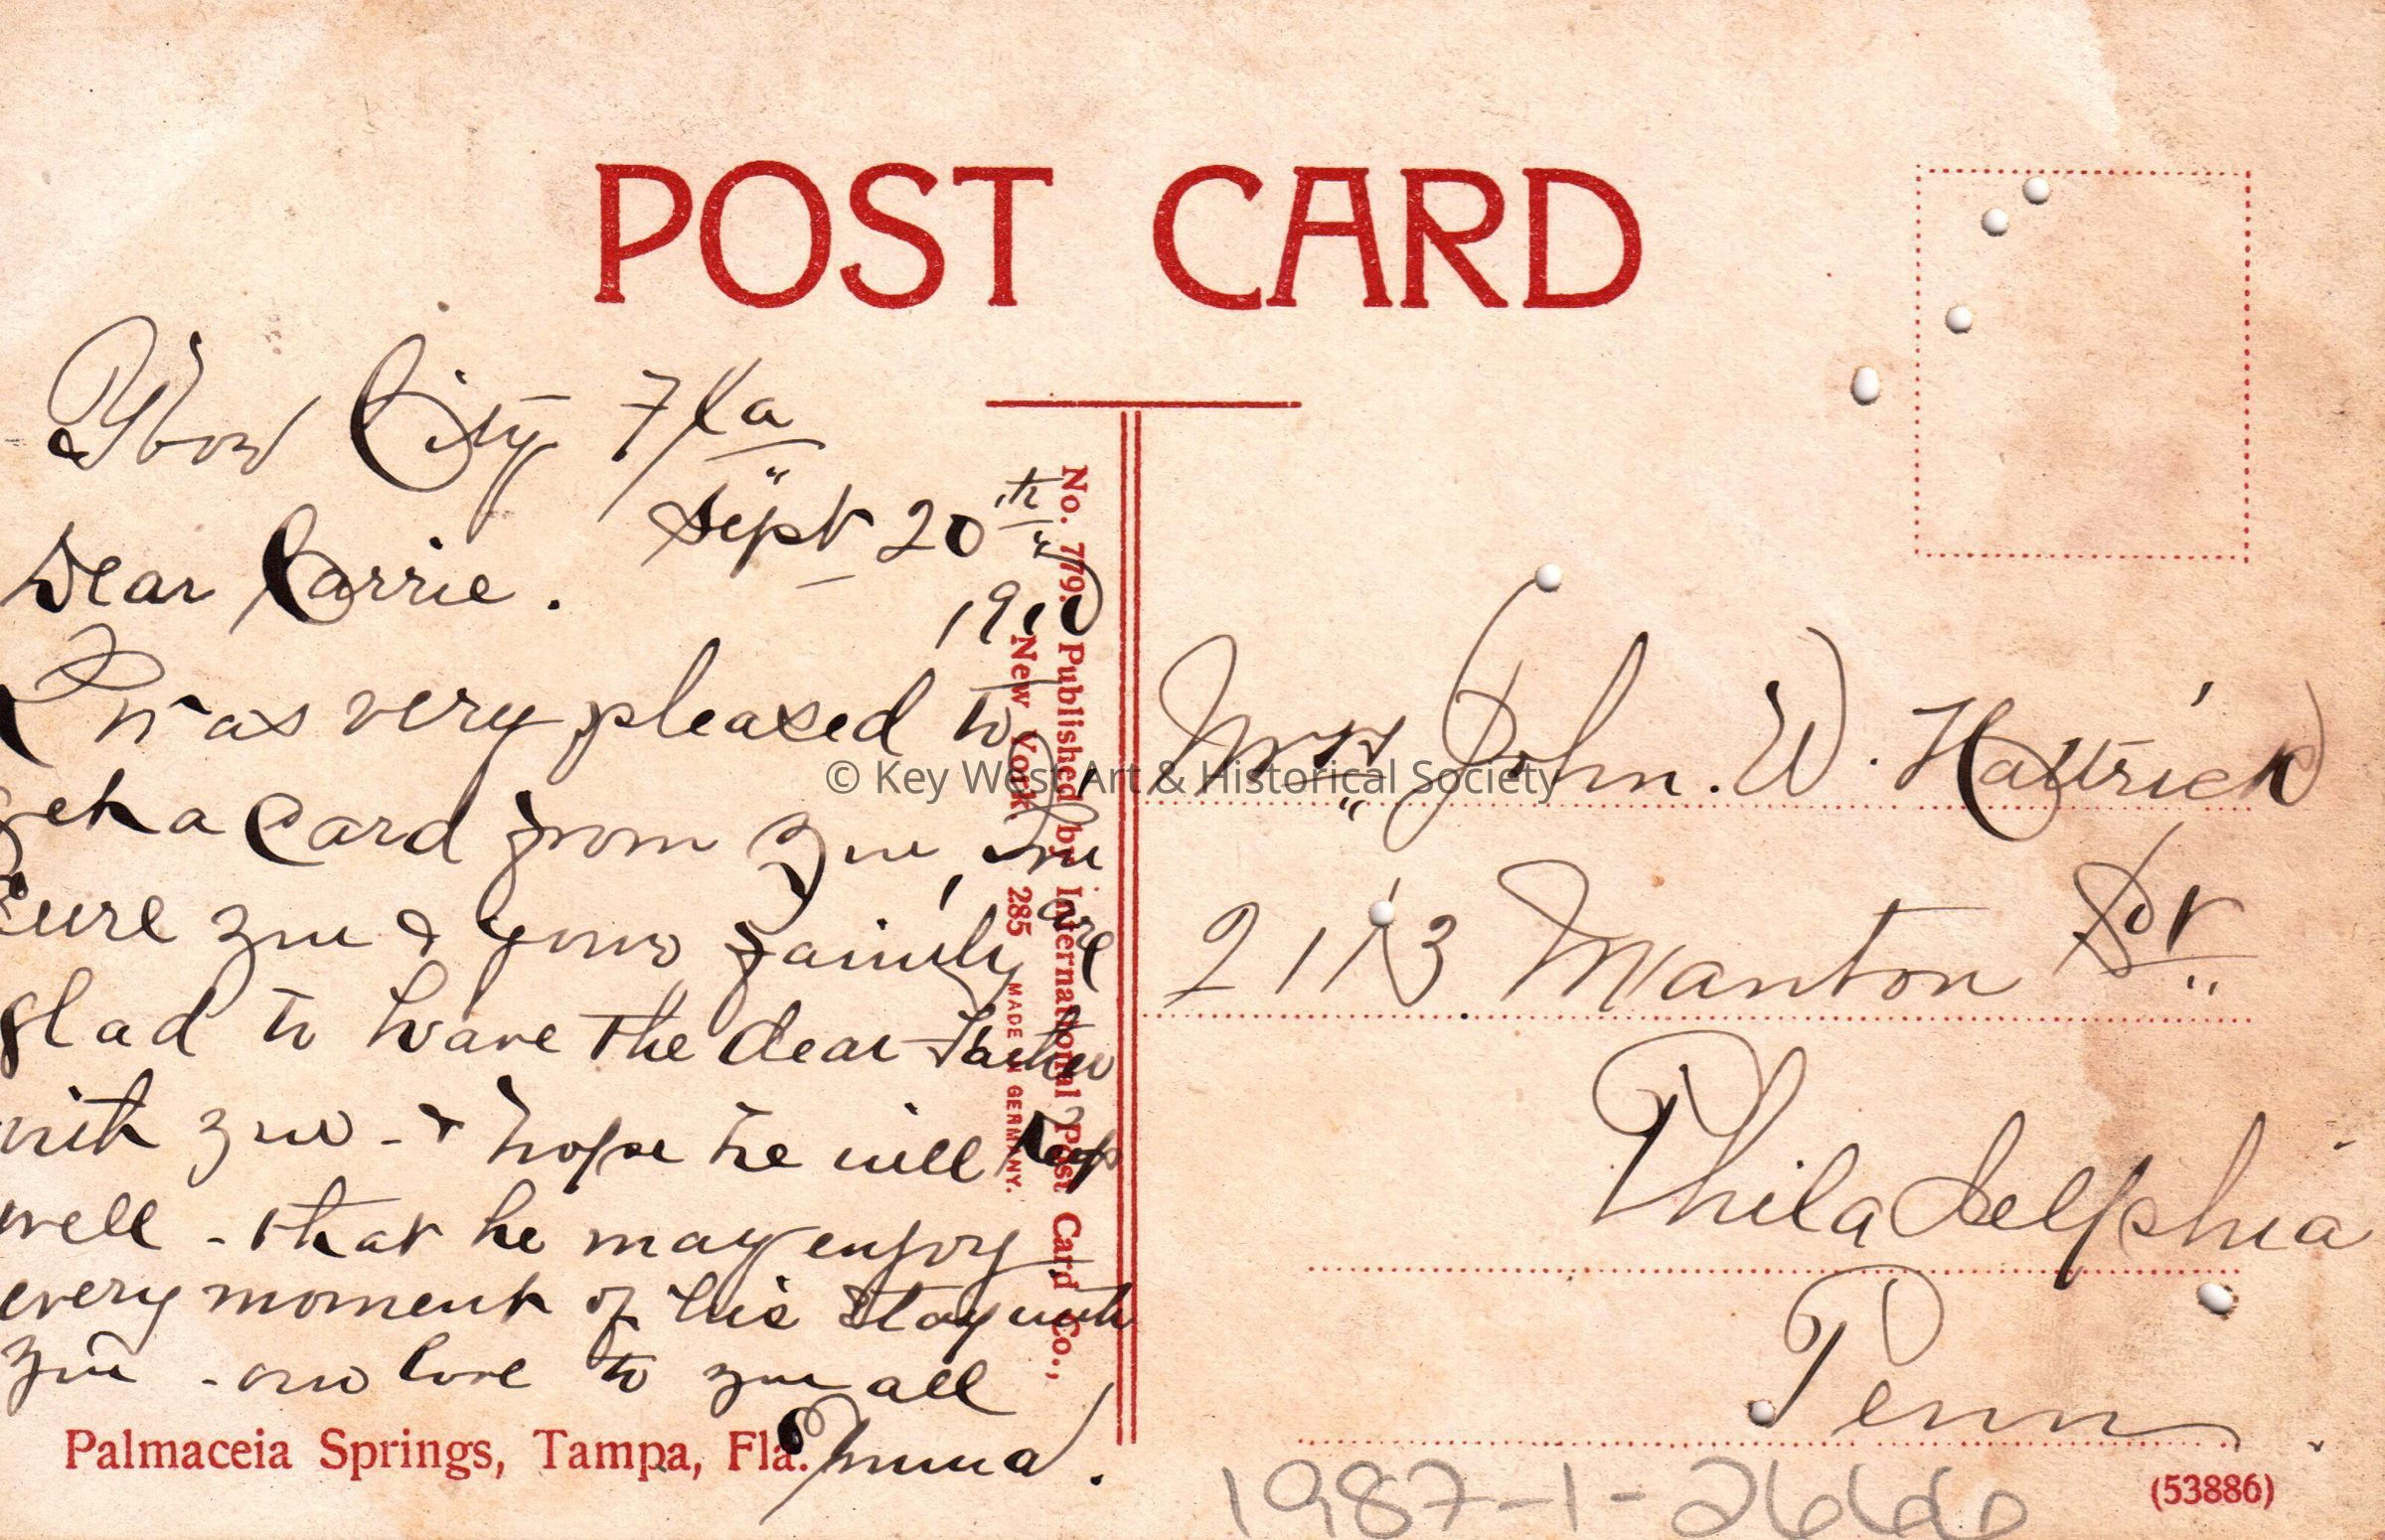 POST CARD
Ybor City Fla
Sept 20th
1910
Dear Carrie.
I was very pleased to
get a Card from you, I'm
sure you & your family are
glad to have the dear Father
with you - & hope he will keep
well - that he may enjoy
every moment of his stay with
you - our love to you all
Emma.
Palmaceia Springs, Tampa, Fla.
No. 779. Published by International Post Card Co.,
New York 285 MADE IN GERMANY.
Mrs John. W. Hattrick
2113 Manton St
Philadelphia
Penn.
(53886)
1987-1-2666
© Key West Art & Historical Society